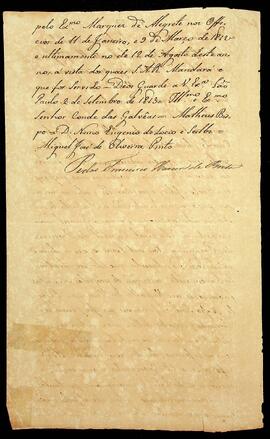 pelo Exmo Marquez de Alegrete nos Offi-
cios de 11 de Janeiro, e 9 de Março de 1812
e ultimamente no de 12 de Agosto deste an-
no, a vista dos quaes S.A.R. Mandará o
que for servido = Deos Guarde a V. Exa São
Paulo 2 de Setembro de 1813 = Illmo e Exmo
Senhor Conde das Galvêas = Matheus Bis-
po = D. Nuno Eugenio de Locio e Seilbz =
Miguel José de Oliveira Pinto
Pedro Francisco